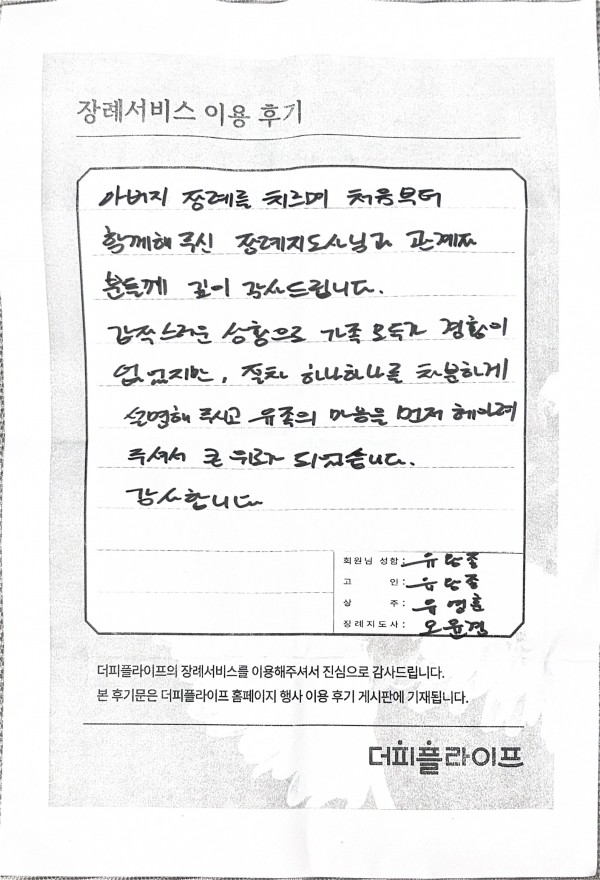 장례서비스 이용 후기
아버지 장례를 치르며 처음부터
함께해 주신 장례지도사님과 관계자
분들께 깊이 감사드립니다.
갑작스러운 상황으로 가족 모두가 경황이
없었지만, 절차 하나하나를 차분하게
설명해 주시고 유족의 마음을 먼저 헤아려
주셔서 큰 위로가 되었습니다.
감사합니다
회원님 성함: 유
고 인: 유
상 주: 유영훈
장례지도사: 오윤경
더피플라이프의 장례서비스를 이용해주셔서 진심으로 감사드립니다.
본 후기문은 더피플라이프 홈페이지 행사 이용 후기 게시판에 기재됩니다.
더피플라이프